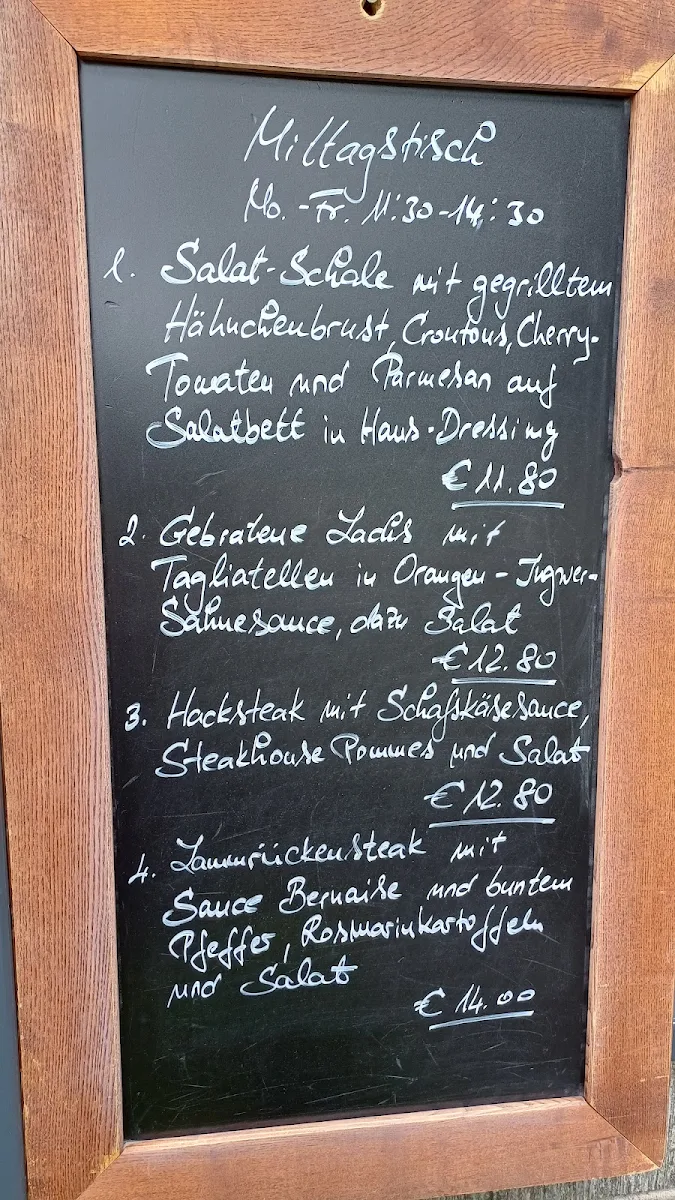 Mittagstisch
Mo. - Fr. 11:30-14:30
1. Salat-Schale mit gegrilltem
Hähnchenbrust, Croutons, Cherry-
Tomaten und Parmesan auf
Salatbett in Haus-Dressing
€ 11.80
2. Gebratene Lachs mit
Tagliatellen in Orangen-Ingwer-
Sahnesauce, dazu Salat
€ 12.80
3. Hacksteak mit Schafskäsesauce,
Steakhouse Pommes und Salat
€ 12.80
4. Lammrückensteak mit
Sauce Bernaise und buntem
Pfeffer, Rosmarinkartoffeln
und Salat
€ 14.00